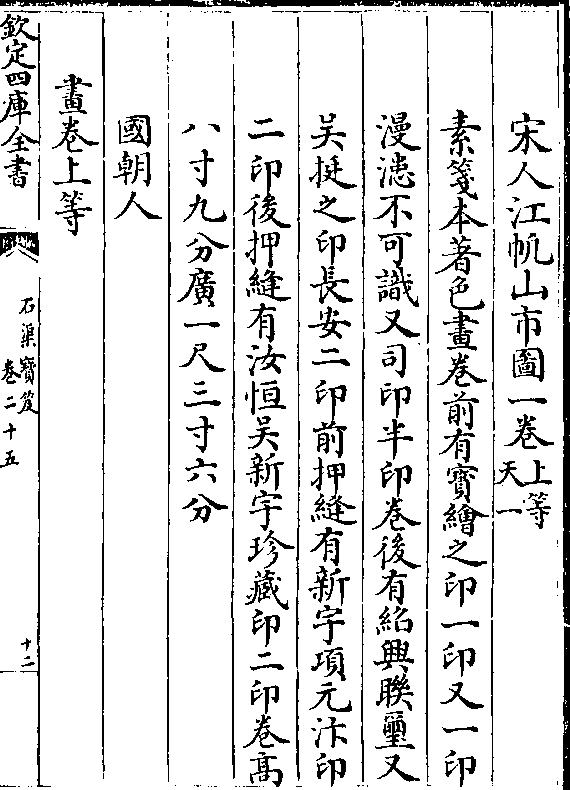 宋人江帆山市圖一卷上等天一
素箋本著色畫卷前有寳繪之印一印又一印
漫漶不可識又司印半印卷後有紹興聯璽又
吴挺之印長安二印前押縫有新宇項元汴印
二印後押縫有汝恒吴新宇珍藏印二印卷髙
八寸九分廣一尺三寸六分
國朝人
畫卷上等
欽定四庫全書
石渠寶笈
卷二十五
十二